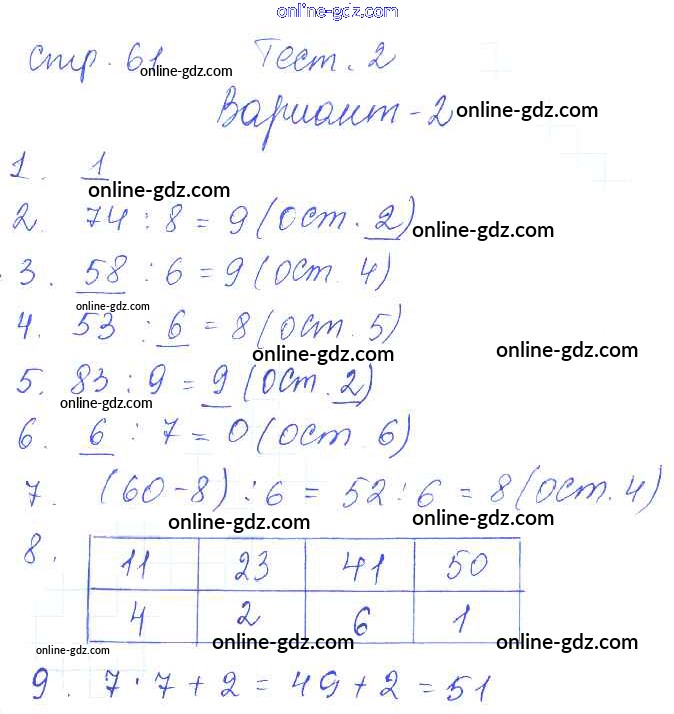 online-gdz.com
Стр. 61 Тест. 2
online-gdz.com
Вариант - 2
online-gdz.com
1. 1
online-gdz.com
2. 74 : 8 = 9 (ост. 2)
online-gdz.com
3. 58 : 6 = 9 (ост. 4)
online-gdz.com
4. 53 : 6 = 8 (ост. 5)
online-gdz.com
online-gdz.com
5. 83 : 9 = 9 (ост. 2)
online-gdz.com
6. 6 : 7 = 0 (ост. 6)
7. (60 - 8) : 6 = 52 : 6 = 8 (ост. 4)
online-gdz.com
online-gdz.com
8.
11 23 41 50
4 2 6 1
online-gdz.com
online-gdz.com
online-gdz.com
9. 7 · 7 + 2 = 49 + 2 = 51